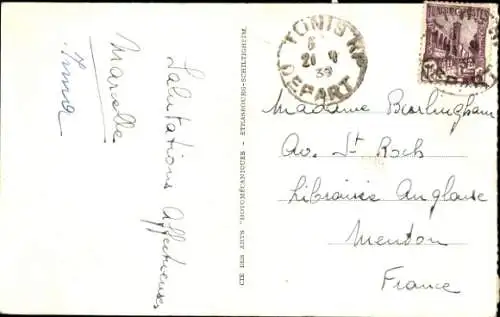 Salutations Affectueuses
Marcelle
CIE DES ARTS PHOTOMÉCANIQUES - STRASBOURG-SCHILTIGHEIM.
TUNIS RP
21 8
39
DEPART
Madame Burlingham
Av. St Roch
Librairie Anglaise
Menton
France